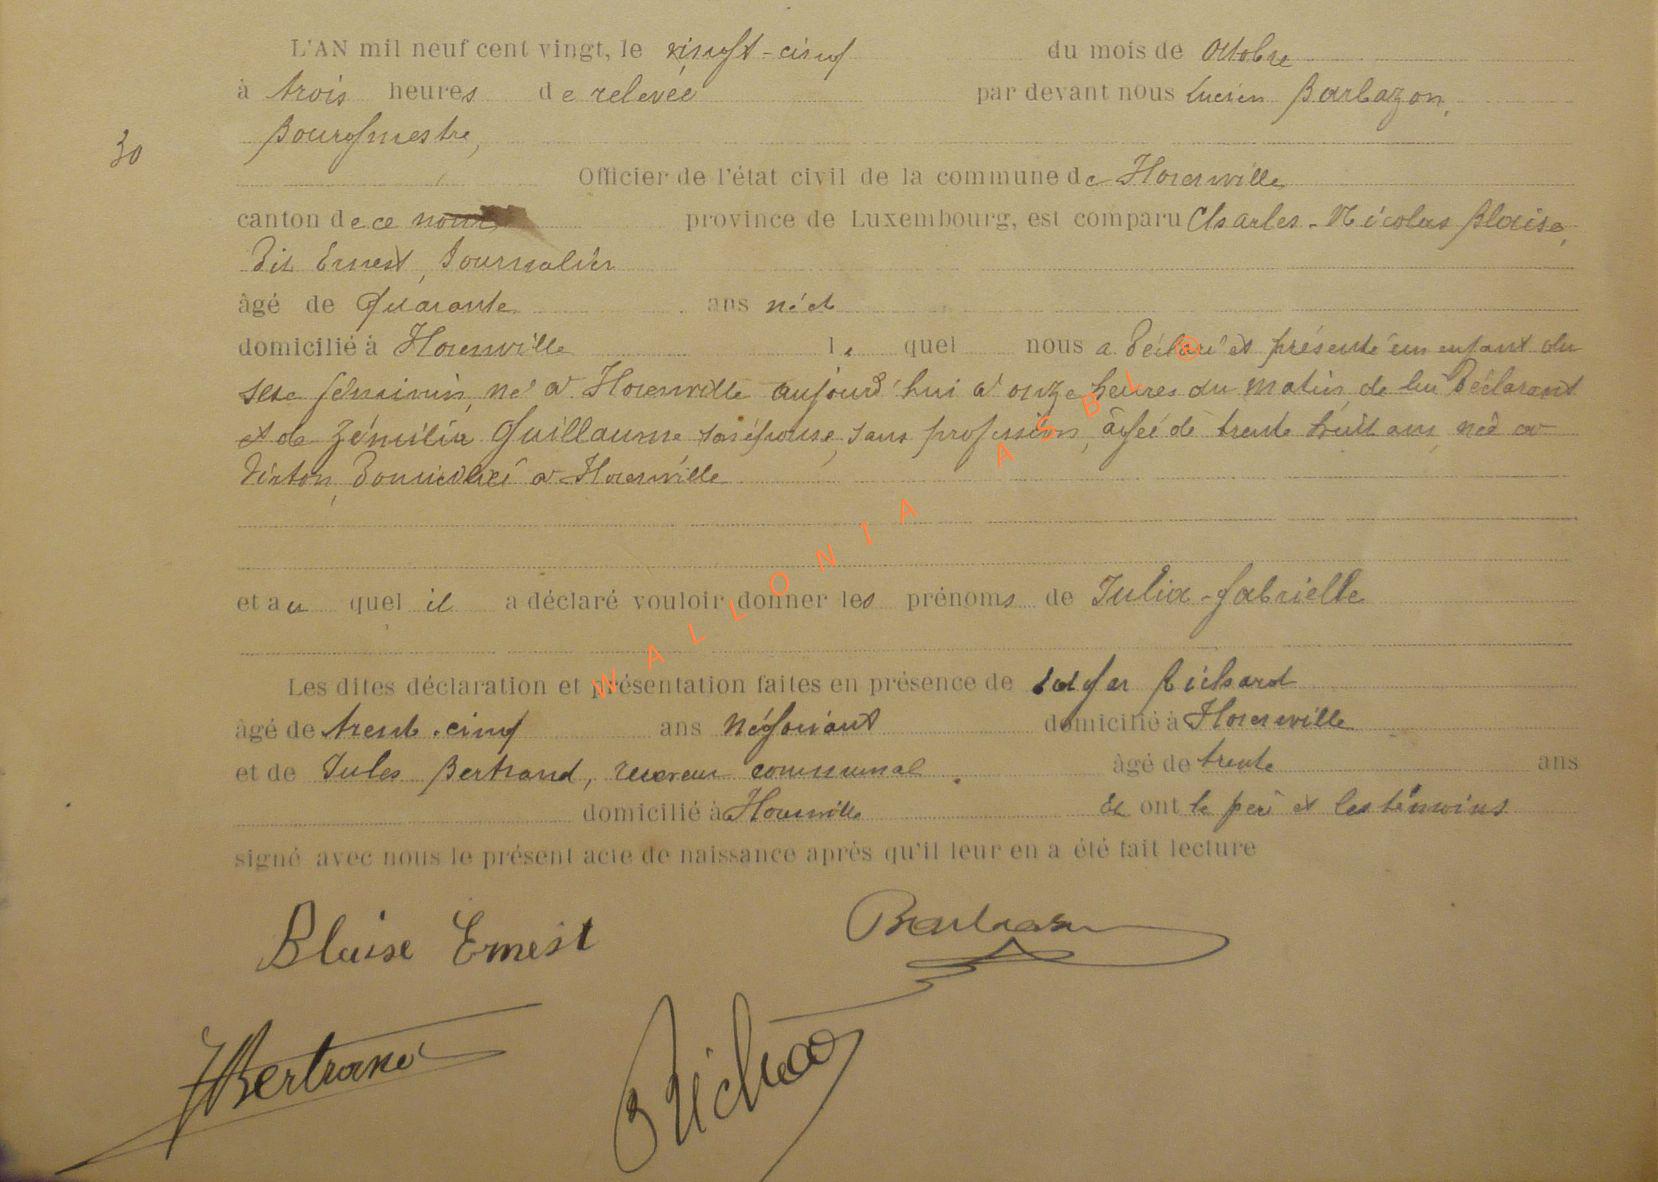 L'AN mil neuf cent vingt, le vingt-cinq du mois de Octobre
à trois heures de relevée par devant nous Lucien Barbazon,
Bourgmestre,
30
Officier de l'état civil de la commune de
canton de ce province de Luxembourg, est comparu Charles-Nicolas Blaise,
dit Ernest, Journalier
âgé de Quarante ans né et
domicilié à lequel nous a déclaré et présenté un enfant du
sexe féminin, né à aujourd'hui à onze heures du matin, de lui déclarant
et de Zémilia Guillaume son épouse, sans profession, âgée de trente huit ans, née à
Virton, domiciliée à
et auquel il a déclaré vouloir donner les prénoms de Julia-Gabrielle
Les dites déclaration et présentation faites en présence de Edgar Richard
âgé de trente-cinq ans négociant domicilié à
et de Jules Bertrand, receveur communal âgé de trente ans
domicilié à Et ont le père et les témoins
signé avec nous le présent acte de naissance après qu'il leur en a été fait lecture
Blaise Ernest
Barbazon
JBertrand
Richard
WALLONIA ASBL ©